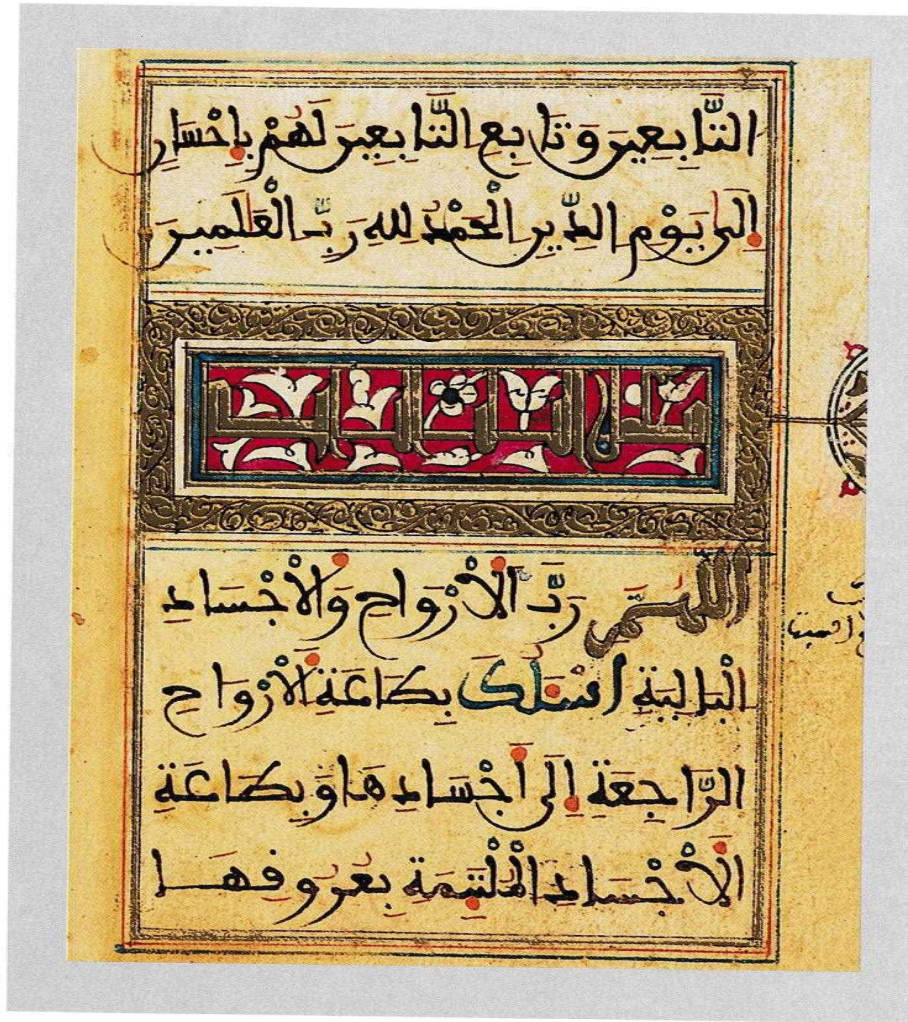 التَّابِعِينَ وَتَابِعِ التَّابِعِينَ لَهُمْ بِإِحْسَانٍ
إِلَى يَوْمِ الدِّينِ الْحَمْدُ لِلهِ رَبِّ الْعَلَمِينَ
اللَّهُمَّ رَبَّ الْأَرْوَاحِ وَالْأَجْسَادِ
الْبَالِيَةِ أَسْئَلُكَ بِطَاعَةِ الْأَرْوَاحِ
الرَّاجِعَةِ إِلَى أَجْسَادِهَا وَبِطَاعَةِ
الْأَجْسَادِ الْمُلْتَئِمَةِ بِعُرُوقِهَا